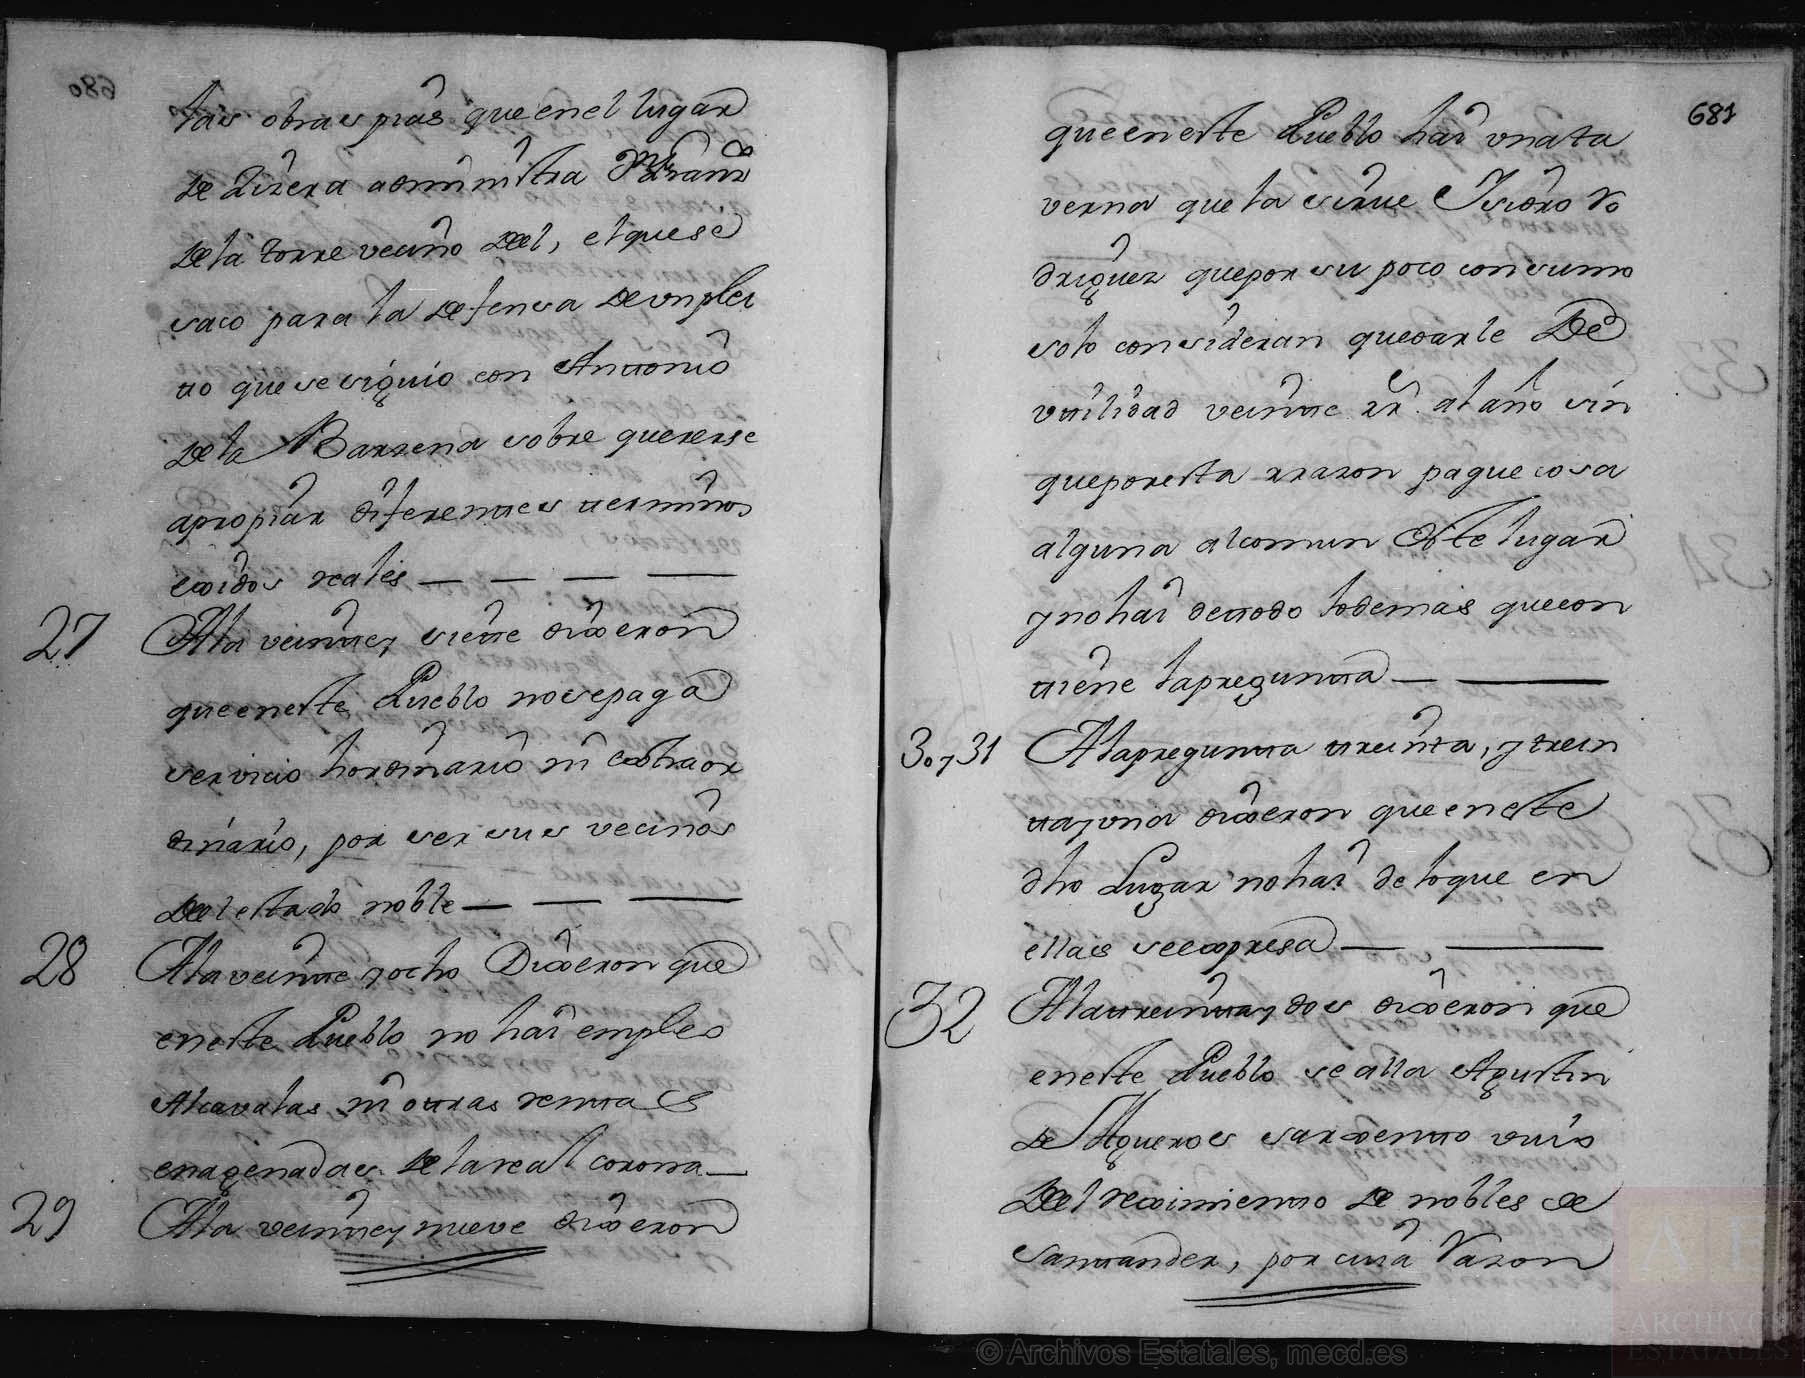 tas obras pias que en el lugar
de Lizera administra Franco
de la torre vecino del, el que se
saco para la defensa de un plei
tto que se siguio con Anttonio
de la Barzena sobre quererse
apropiar diferenttes tterminos
exidos reales
27 A la veintte y siette dixeron
que en este Pueblo no se paga
servicio hordinario ni extraor
dinario, por ser sus vecinos
del estado noble
28 A la veintte y ocho Dixeron que
en este Pueblo no hai empleo
Alcavalas ni ottras renttas
enagenadas de la real corona
29 A la veintte y nueve dixeron
681
que en este Pueblo hai una ta
verna que la sirve Isidro Ro
driguez que por su poco consumo
solo consideran quedarle De
uttilidad veintte rr.s al año sin
que por esta rrazon pague cosa
alguna al comun deste lugar
y no hai de ttodo lo demas que con
ttiene la preguntta
30 y 31 A la preguntta treinta, y trein
tta y una dixeron que en este
dho Lugar no hai de lo que en
ellas se expresa
32 A la ttreintta y dos dixeron que
en este Pueblo se alla Agustin
de Agueros sarxentto vivo
Del reximientto de nobles de
Santtander, por cuia Razon
© Archivos Estatales, mecd.es
AE
ARCHIVOS
ESTATALES